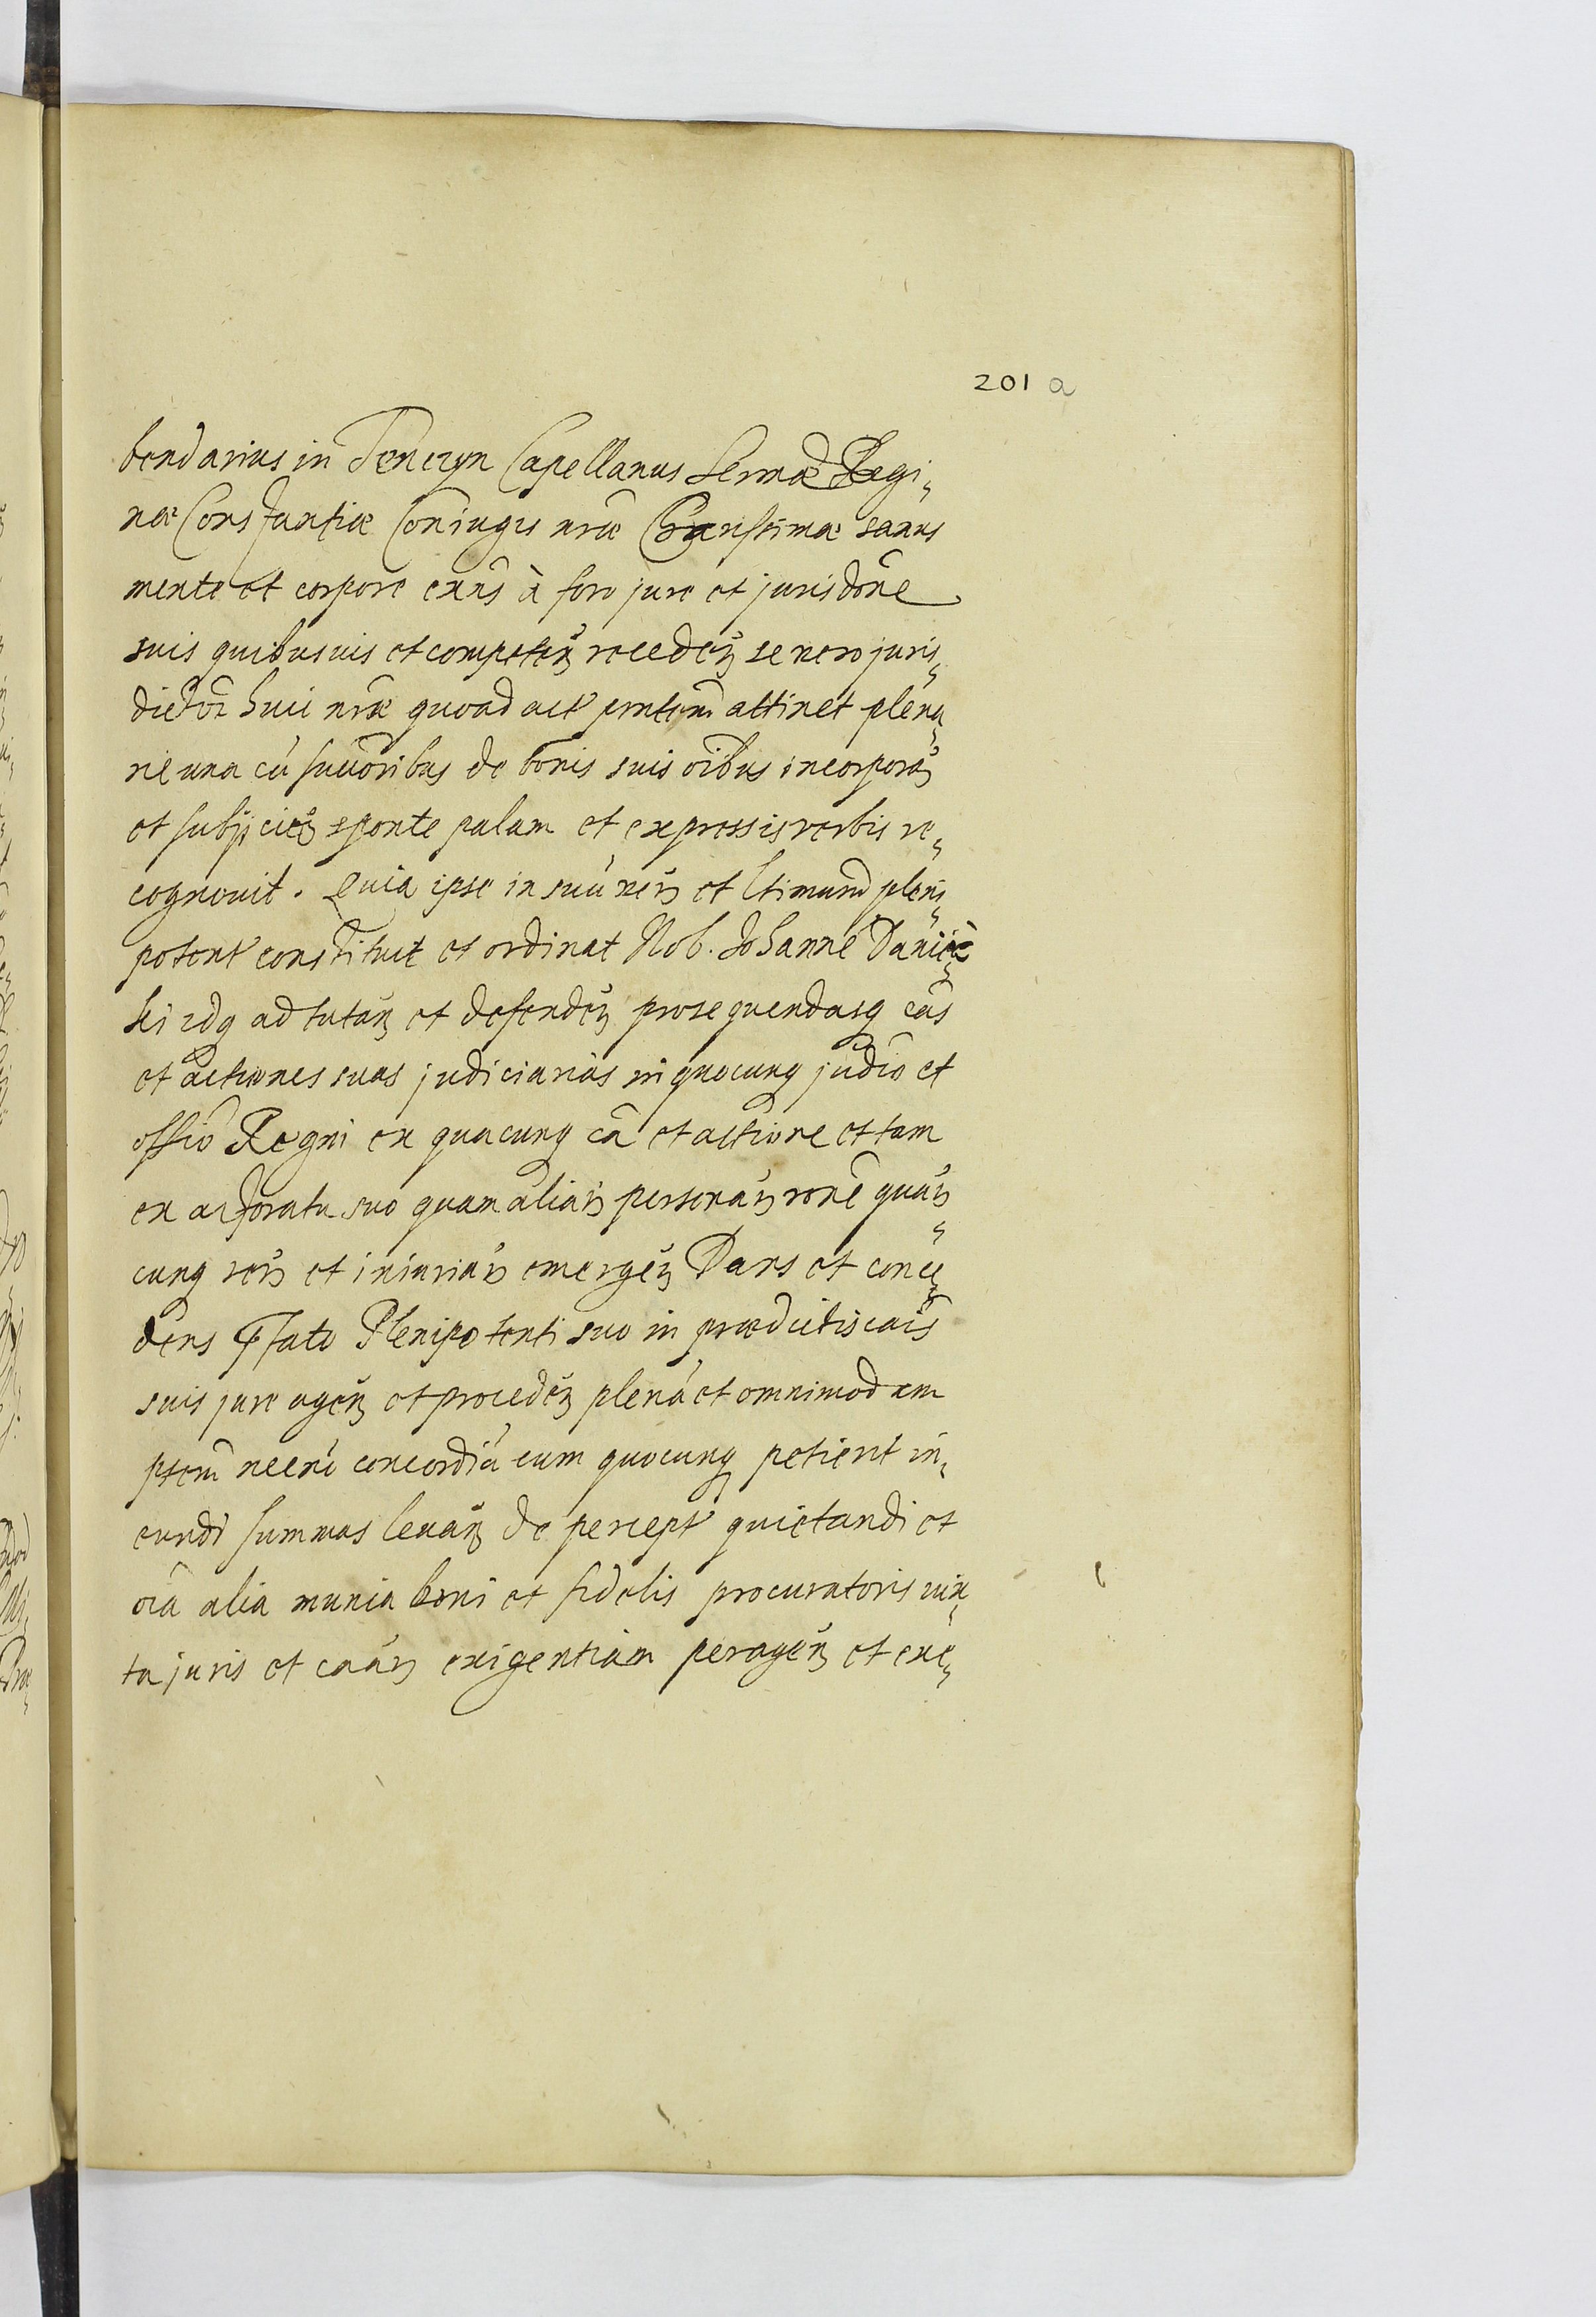 201 a
bendarius in Tenczyn Capellanus Sermæ Regi„
næ Constantiæ Coniugis nræ Charissimæ sanus
mente et corpore exñs à foro jure et jurisdõne
suis quibusuis et competeñ recedeñ se vero juris„
dictõi huic nræ quoad act pntem attinet plena„
rie una cũ succõribus de bonis suis oĩbus incorporañ
et subjicieñ sponte palam et expressis verbis re„
cognouit. Quia ipse in suũ verũ et ltimum pleni„
potent constituit et ordinat Nob. Johannẽ Daniec„
ki idq ad tutañ et defendeñ prosequendasq cãs
et actiones suas judiciarias in quocunq judịo et
offio Regni ex quacunq cã et actione et tam
ex actoratu suo quam aliarũ personarũ rõne quarũ„
cunq rerũ et iniuriarũ emergeñ Dans et conce„
dens pfato Plenipotenti suo in prædictis cãis
suis jure ageñ et procedeñ plenã et omnimodam
ptem necnõ concordiã cum quocunq petierit in„
eundi summas leuañ de percept quietandi et
oĩa alia munia boni et fidelis procuratoris iux„
ta juris et cãarũ exigentiam perageñ et exe„